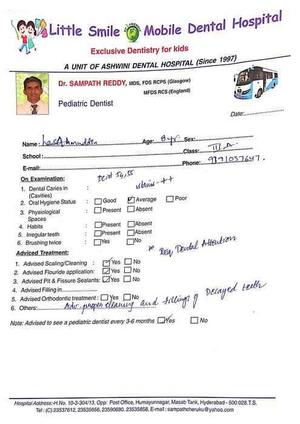 Little Smile Mobile Dental Hospital
Exclusive Dentistry for kids
A UNIT OF ASHWINI DENTAL HOSPITAL (Since 1997)
Dr. SAMPATH REDDY, MDS, FDS RCPS (Glasgow)
MFDS RCS (England)
Pediatric Dentist
Date:
Name: Age: 8 yr
School: Class: III
E-mail: Phone:
On Examination:
1. Dental Caries in (Cavities) :
2. Oral Hygiene Status : Good Average Poor
3. Physiological Spaces : Present Absent
4. Habits : Present Absent
5. Irregular teeth : Present Absent
6. Brushing twice : Yes No
Dental Attention
Adviced Treatment:
1. Advised Scaling/Cleaning : Yes No
2. Advised Flouride application: Yes No
3. Advised Pit & Fissure Sealants: Yes No
4. Advised Filling in
5. Advised Orthodontic treatment : Yes No
6. Others: Adv. cleaning and fillings of Decayed teeth
Note: Advised to see a pediatric dentist every 3-6 months Yes No
Hospital Address: H.No. 10-3-304/13, Opp: Post Office, Humayunnagar, Masab Tank, Hyderabad - 500 028.T.S.
Tel: (C) 23537612, 23535656, 23590690, 23535858, E-mail : sampathcheruku@yahoo.com